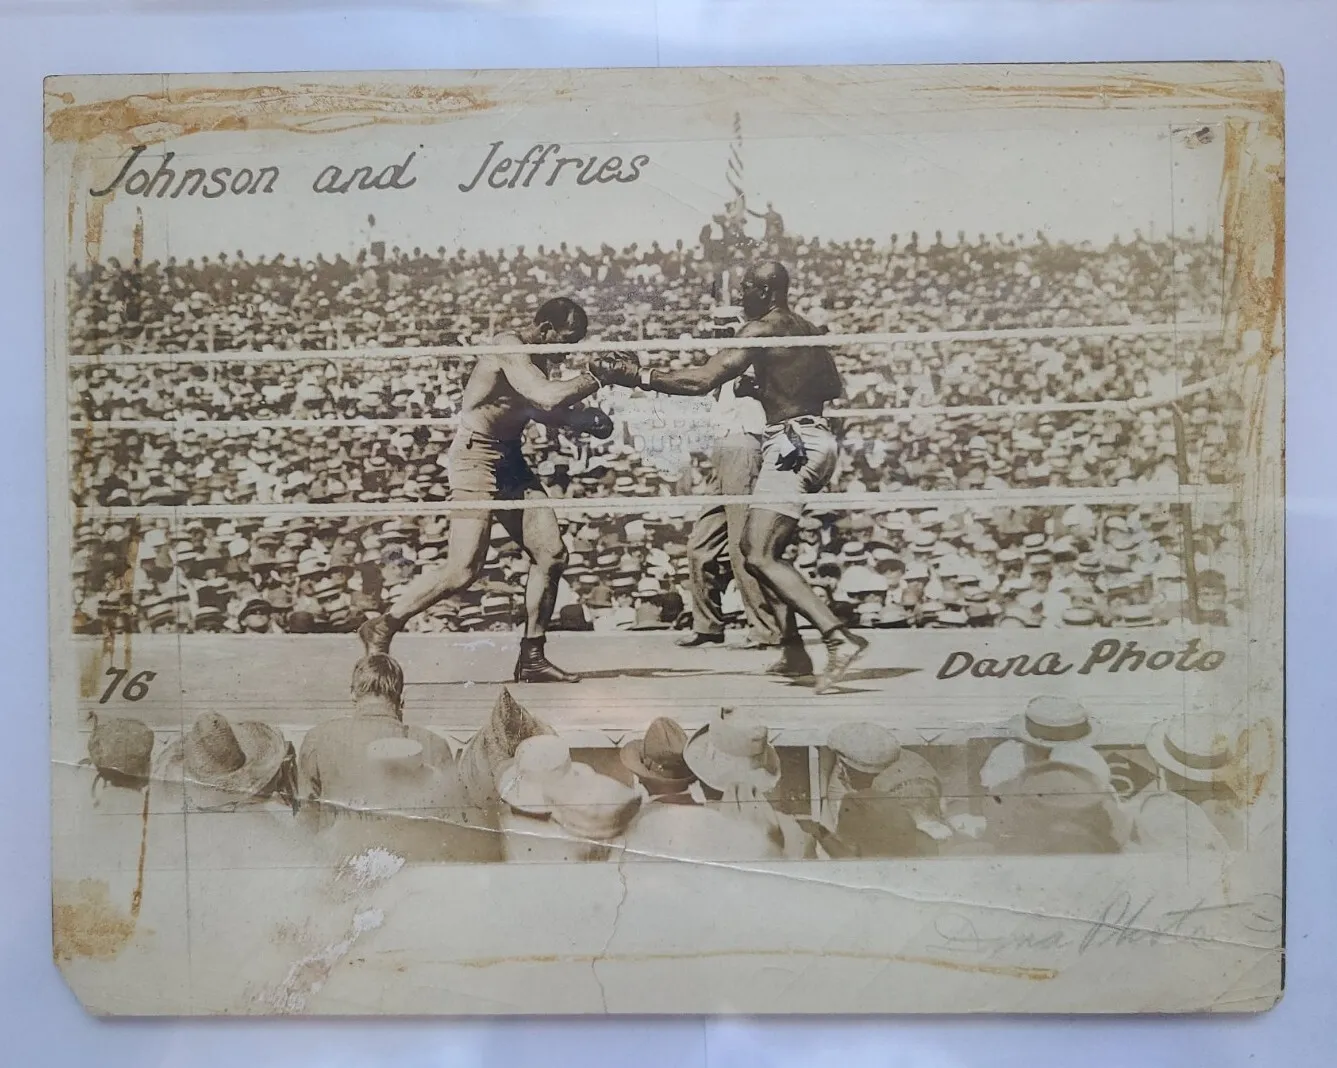 Johnson and Jeffries
76
Dana Photo
Dana Photo